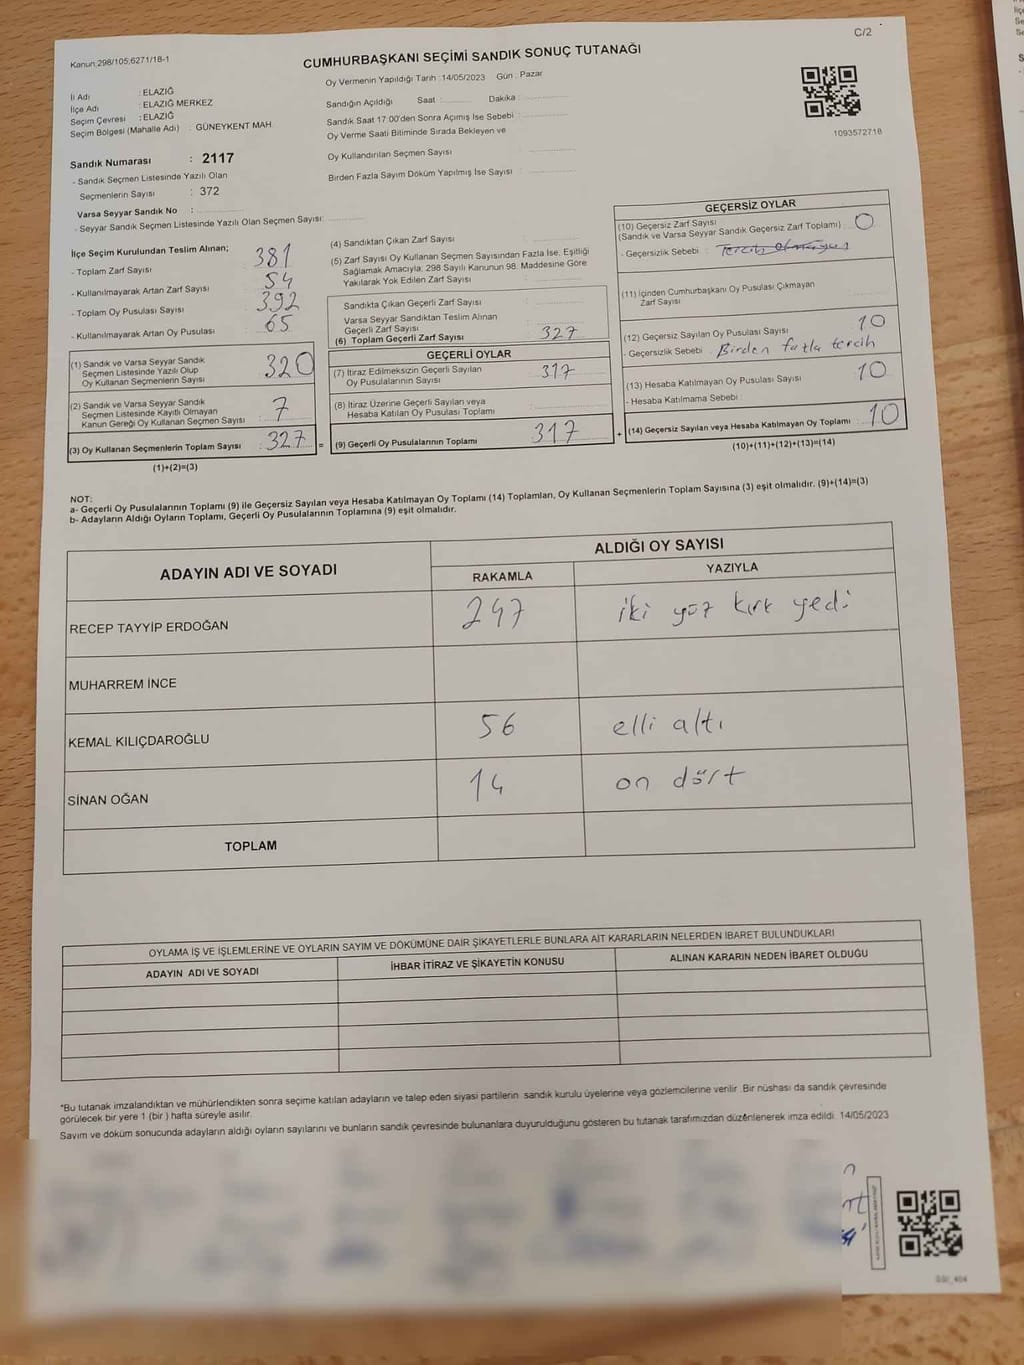 C/2
Kanun,298/105,6271/18-1
CUMHURBAŞKANI SEÇİMİ SANDIK SONUÇ TUTANAĞI
Oy Vermenin Yapıldığı Tarih :14/05/2023 Gün : Pazar
İl Adı : ELAZIĞ
İlçe Adı : ELAZIĞ MERKEZ
Seçim Çevresi : ELAZIĞ
Seçim Bölgesi (Mahalle Adı) : GÜNEYKENT MAH
Sandık Numarası : 2117
- Sandık Seçmen Listesinde Yazılı Olan
Seçmenlerin Sayısı : 372
Varsa Seyyar Sandık No :
- Seyyar Sandık Seçmen Listesinde Yazılı Olan Seçmen Sayısı:
Sandığın Açıldığı Saat : Dakika :
Sandık Saat 17:00'den Sonra Açımış İse Sebebi :
Oy Verme Saati Bitiminde Sırada Bekleyen ve
Oy Kullandırılan Seçmen Sayısı :
Birden Fazla Sayım Döküm Yapılmış İse Sayısı :
1093572718
İlçe Seçim Kurulundan Teslim Alınan;
- Toplam Zarf Sayısı : 381
- Kullanılmayarak Artan Zarf Sayısı : 54
- Toplam Oy Pusulası Sayısı : 392
- Kullanılmayarak Artan Oy Pusulası : 65
(1) Sandık ve Varsa Seyyar Sandık
Seçmen Listesinde Yazılı Olup
Oy Kullanan Seçmenlerin Sayısı : 320
(2) Sandık ve Varsa Seyyar Sandık
Seçmen Listesinde Kayıtlı Olmayan
Kanun Gereği Oy Kullanan Seçmen Sayısı : 7
(3) Oy Kullanan Seçmenlerin Toplam Sayısı : 327 =
(1)+(2)=(3)
(4) Sandıktan Çıkan Zarf Sayısı :
(5) Zarf Sayısı Oy Kullanan Seçmen Sayısından Fazla İse, Eşitliği
Sağlamak Amacıyla; 298 Sayılı Kanunun 98. Maddesine Göre
Yakılarak Yok Edilen Zarf Sayısı :
Sandıkta Çıkan Geçerli Zarf Sayısı :
Varsa Seyyar Sandıktan Teslim Alınan
Geçerli Zarf Sayısı :
(6) Toplam Geçerli Zarf Sayısı : 327
GEÇERLİ OYLAR
(7) İtiraz Edilmeksizin Geçerli Sayılan
Oy Pusulalarının Sayısı : 317
(8) İtiraz Üzerine Geçerli Sayılan veya
Hesaba Katılan Oy Pusulası Toplamı :
(9) Geçerli Oy Pusulalarının Toplamı : 317 +
GEÇERSİZ OYLAR
(10) Geçersiz Zarf Sayısı : 0
(Sandık ve Varsa Seyyar Sandık Geçersiz Zarf Toplamı)
- Geçersizlik Sebebi :
(11) İçinden Cumhurbaşkanı Oy Pusulası Çıkmayan
Zarf Sayısı :
(12) Geçersiz Sayılan Oy Pusulası Sayısı : 10
- Geçersizlik Sebebi : Birden fazla tercih
(13) Hesaba Katılmayan Oy Pusulası Sayısı : 10
- Hesaba Katılmama Sebebi :
(14) Geçersiz Sayılan veya Hesaba Katılmayan Oy Toplamı : 10
(10)+(11)+(12)+(13)=(14)
NOT:
a- Geçerli Oy Pusulalarının Toplamı (9) ile Geçersiz Sayılan veya Hesaba Katılmayan Oy Toplamı (14) Toplamları, Oy Kullanan Seçmenlerin Toplam Sayısına (3) eşit olmalıdır. (9)+(14)=(3)
b- Adayların Aldığı Oyların Toplamı, Geçerli Oy Pusulalarının Toplamına (9) eşit olmalıdır.
ADAYIN ADI VE SOYADI
ALDIĞI OY SAYISI
RAKAMLA YAZIYLA
RECEP TAYYİP ERDOĞAN 247 iki yüz kırk yedi
MUHARREM İNCE
KEMAL KILIÇDAROĞLU 56 elli altı
SİNAN OĞAN 14 on dört
TOPLAM
OYLAMA İŞ VE İŞLEMLERİNE VE OYLARIN SAYIM VE DÖKÜMÜNE DAİR ŞİKAYETLERLE BUNLARA AİT KARARLARIN NELERDEN İBARET BULUNDUKLARI
ADAYIN ADI VE SOYADI İHBAR İTİRAZ VE ŞİKAYETİN KONUSU ALINAN KARARIN NEDEN İBARET OLDUĞU
*Bu tutanak imzalandıktan ve mühürlendikten sonra seçime katılan adayların ve talep eden siyasi partilerin sandık kurulu üyelerine veya gözlemcilerine verilir. Bir nüshası da sandık çevresinde
görülecek bir yere 1 (bir ) hafta süreyle asılır.
Sayım ve döküm sonucunda adayların aldığı oyların sayılarını ve bunların sandık çevresinde bulunanlara duyurulduğunu gösteren bu tutanak tarafımızdan düzenlenerek imza edildi. 14/05/2023